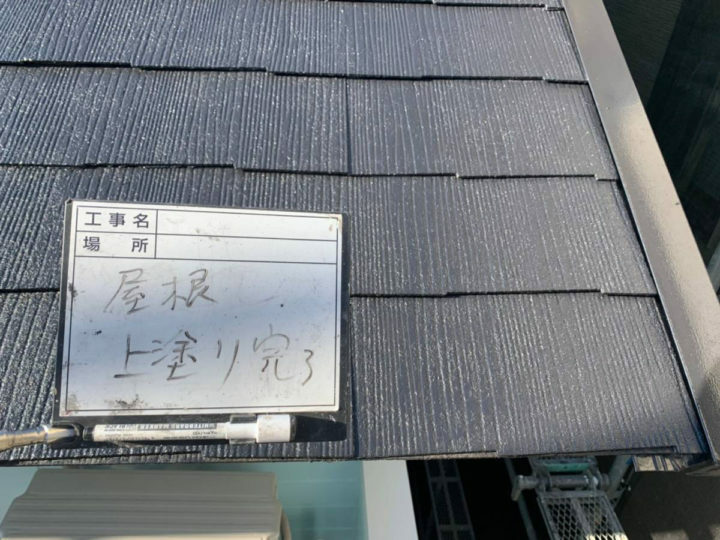 工事名
場所
屋根
上塗り完了
WHITEBOARD MARKER